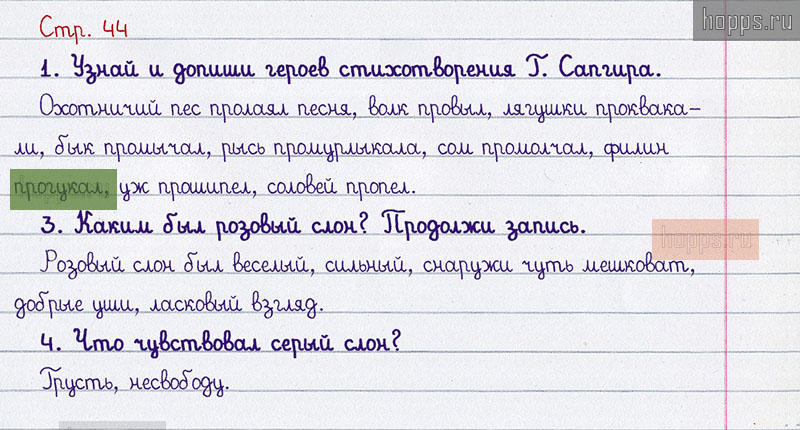 hopps.ru
Стр. 44
1. Узнай и допиши героев стихотворения Г. Сапгира.
Охотничий пес пролаял песня, волк провыл, лягушки проквака-
ли, бык промычал, рысь промурлыкала, сом промолчал, филин
прогукал, уж прошипел, соловей пропел.
3. Каким был розовый слон? Продолжи запись.
hopps.ru
Розовый слон был веселый, сильный, снаружи чуть мешковат,
добрые уши, ласковый взгляд.
4. Что чувствовал серый слон?
Грусть, несвободу.